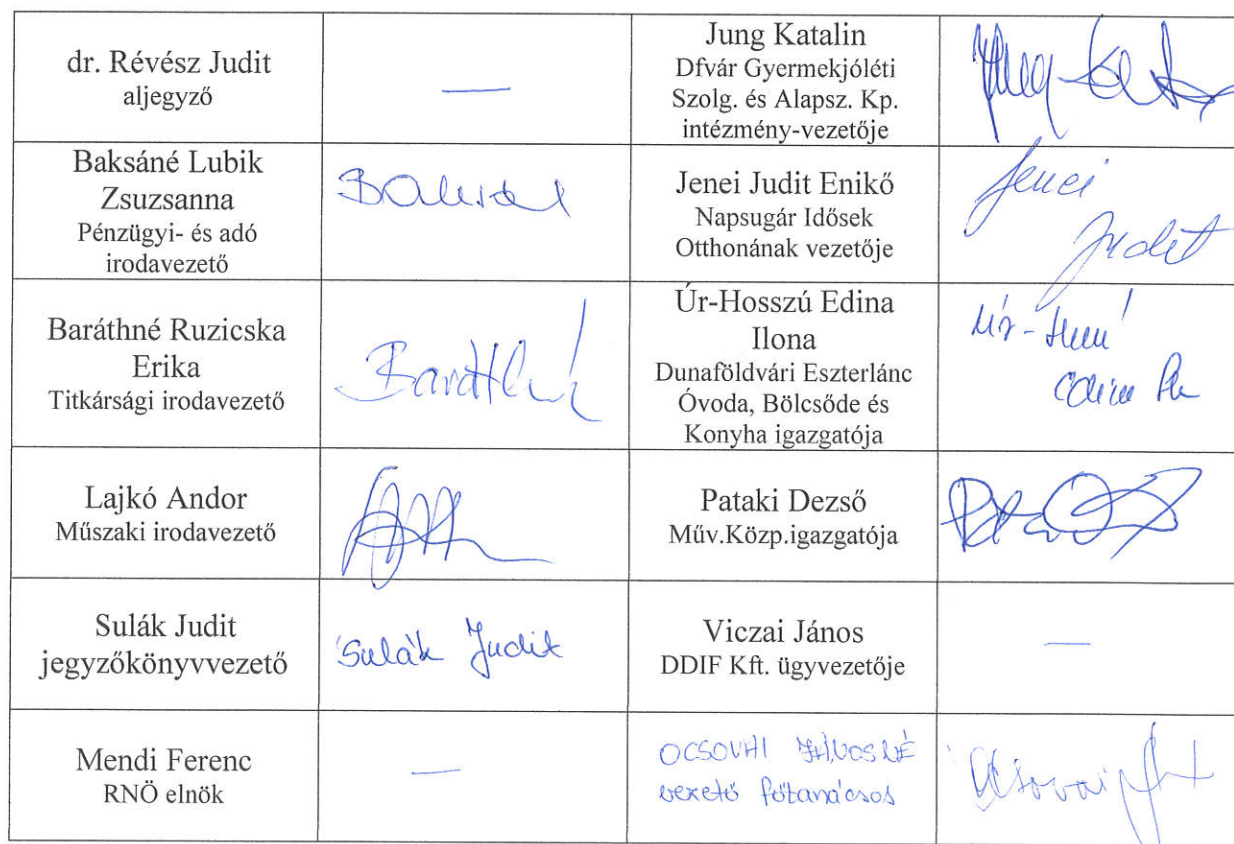 dr. Révész Judit
aljegyző
—
Jung Katalin
Dfvár Gyermekjóléti
Szolg. és Alapsz. Kp.
intézmény-vezetője
Baksáné Lubik
Zsuzsanna
Pénzügyi- és adó
irodavezető
Jenei Judit Enikő
Napsugár Idősek
Otthonának vezetője
Jenei
Judit
Baráthné Ruzicska
Erika
Titkársági irodavezető
Úr-Hosszú Edina
Ilona
Dunaföldvári Eszterlánc
Óvoda, Bölcsőde és
Konyha igazgatója
Lajkó Andor
Műszaki irodavezető
Pataki Dezső
Műv.Közp.igazgatója
Sulák Judit
jegyzőkönyvvezető
Sulák Judit
Viczai János
DDIF Kft. ügyvezetője
—
Mendi Ferenc
RNÖ elnök
—
vezető főtanácsos